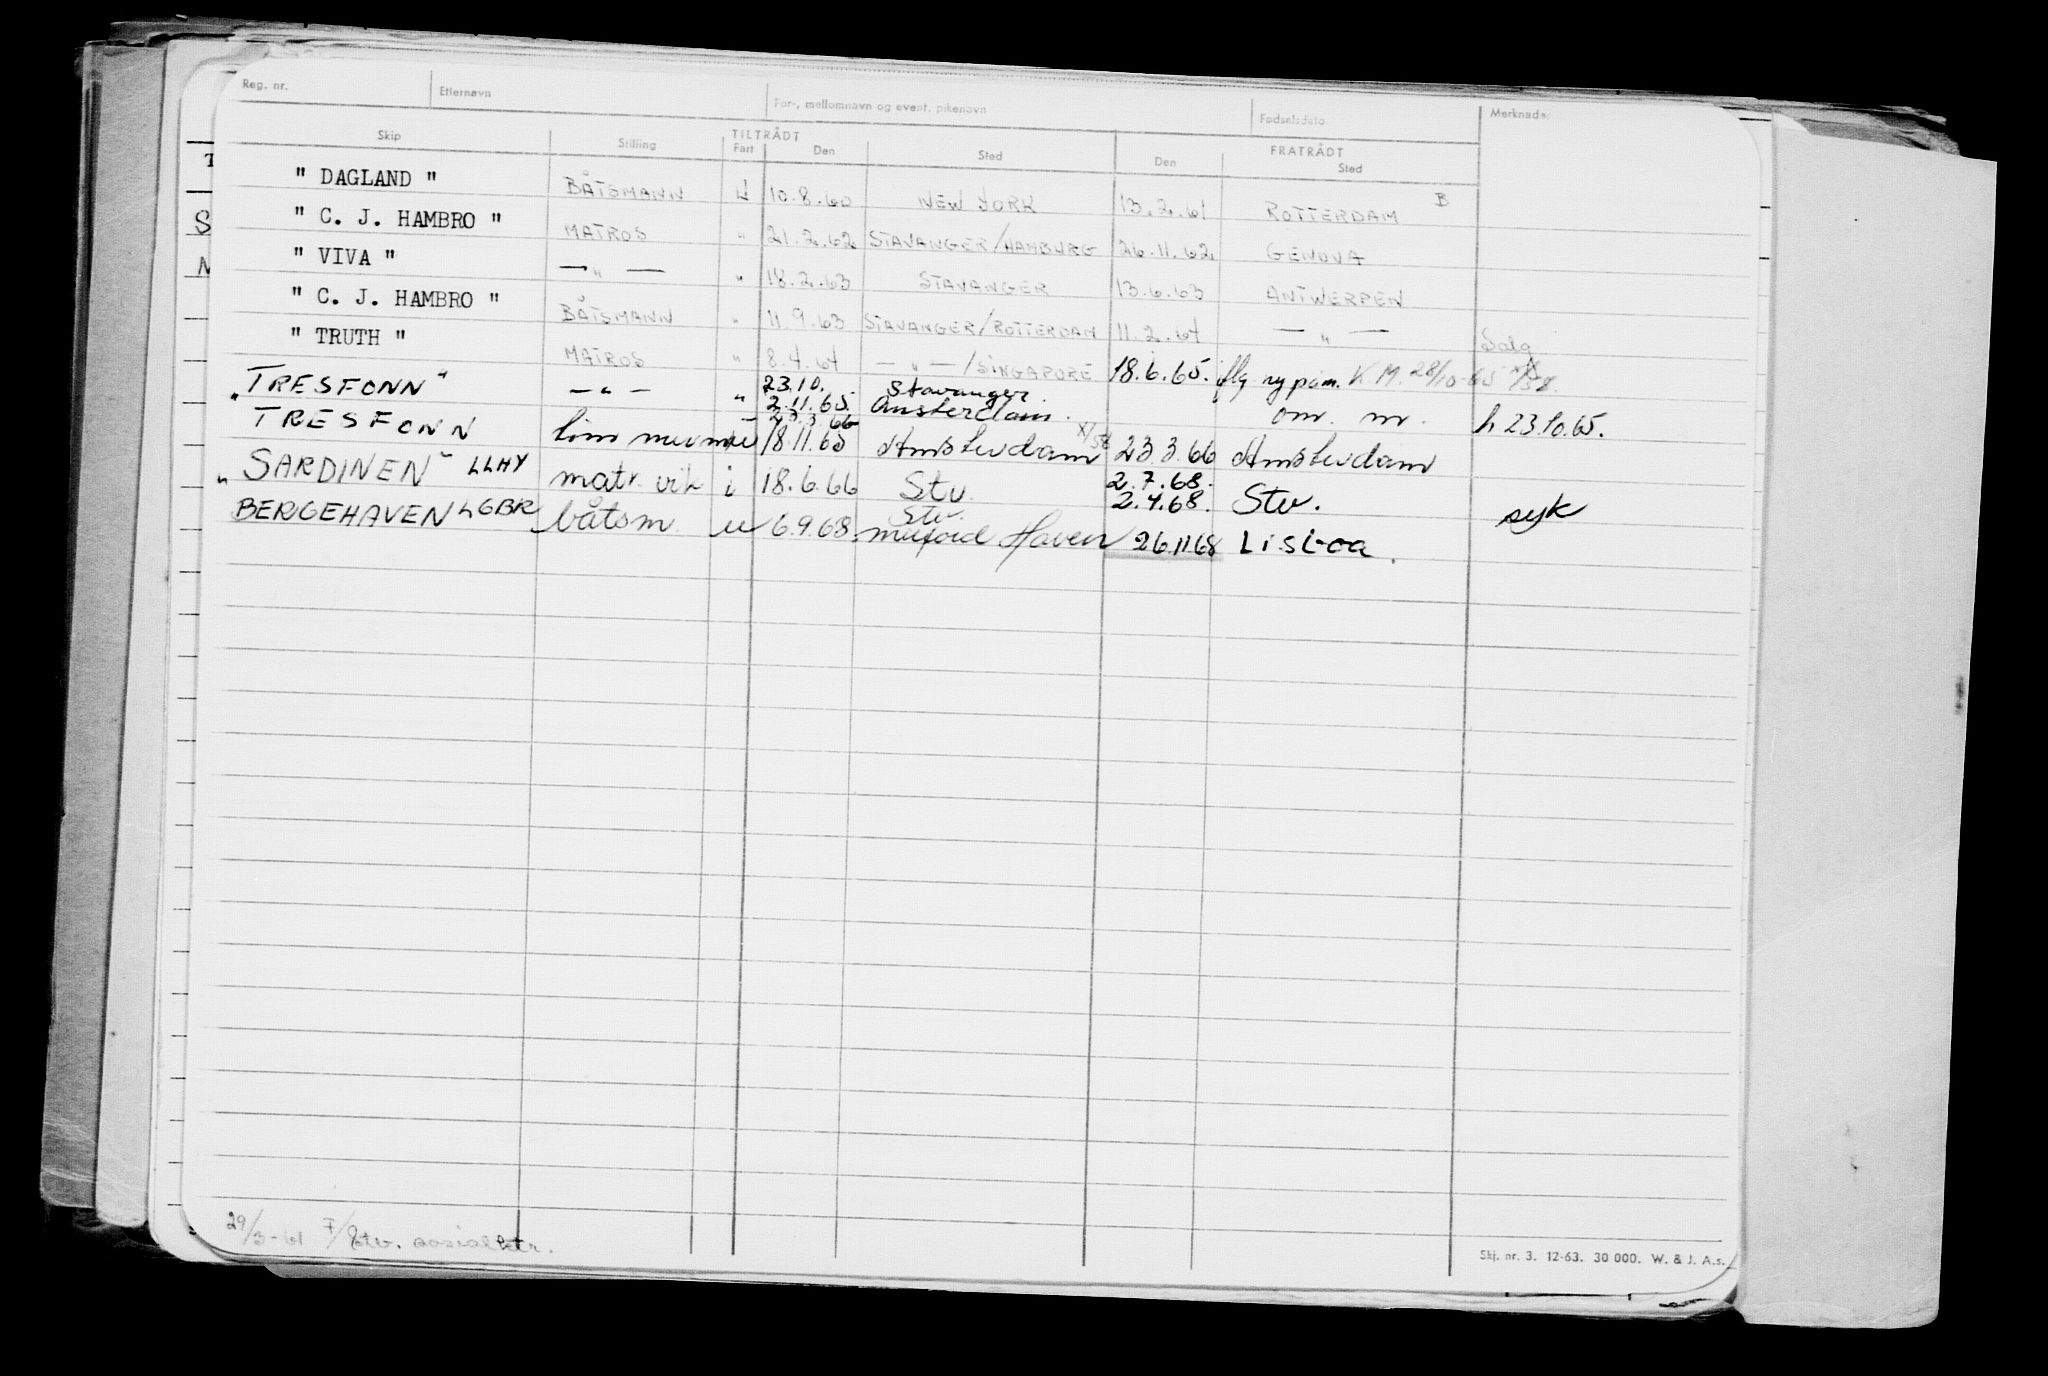 Reg. nr. Etternavn For-, mellomnavn og event. pikenavn Fødselsdato Merknader
TILTRÅDT FRATRÅDT
Skip Stilling Fart Den Sted Den Sted
" DAGLAND " BÅTSMANN U 10.8.60 NEW YORK 13.2.61 ROTTERDAM B
" C. J. HAMBRO " MATROS " 21.2.62 STAVANGER/HAMBURG 26.11.62 GENOVA
" VIVA " — " — " 18.2.63 STAVANGER 13.6.63 ANTWERPEN
" C. J. HAMBRO " BÅTSMANN " 11.9.63 STAVANGER/ROTTERDAM 11.2.64 — " — Salg
" TRUTH " MATROS " 8.4.64 — " — /SINGAPORE 18.6.65. K.M. 28/10-65
" TRESFONN " — " — " 23.10. 2.11.65. Stavanger Amsterdam. om. nr. h 23.10.65.
TRESFONN 23.3.66 18.11.65 Amsterdam 23.3.66 Amsterdam
" SARDINEN " LLHY matr. vik i 18.6.66 Stv. 2.7.68. 2.4.68. Stv. syk
BERGEHAVEN LGBR båtsm. u 6.9.68. Stv. Milford Haven 26.11.68 Lisboa.
29/3-61 F/Stv. sosialktr.
Skj. nr. 3. 12-63. 30 000. W. & J. A.s.